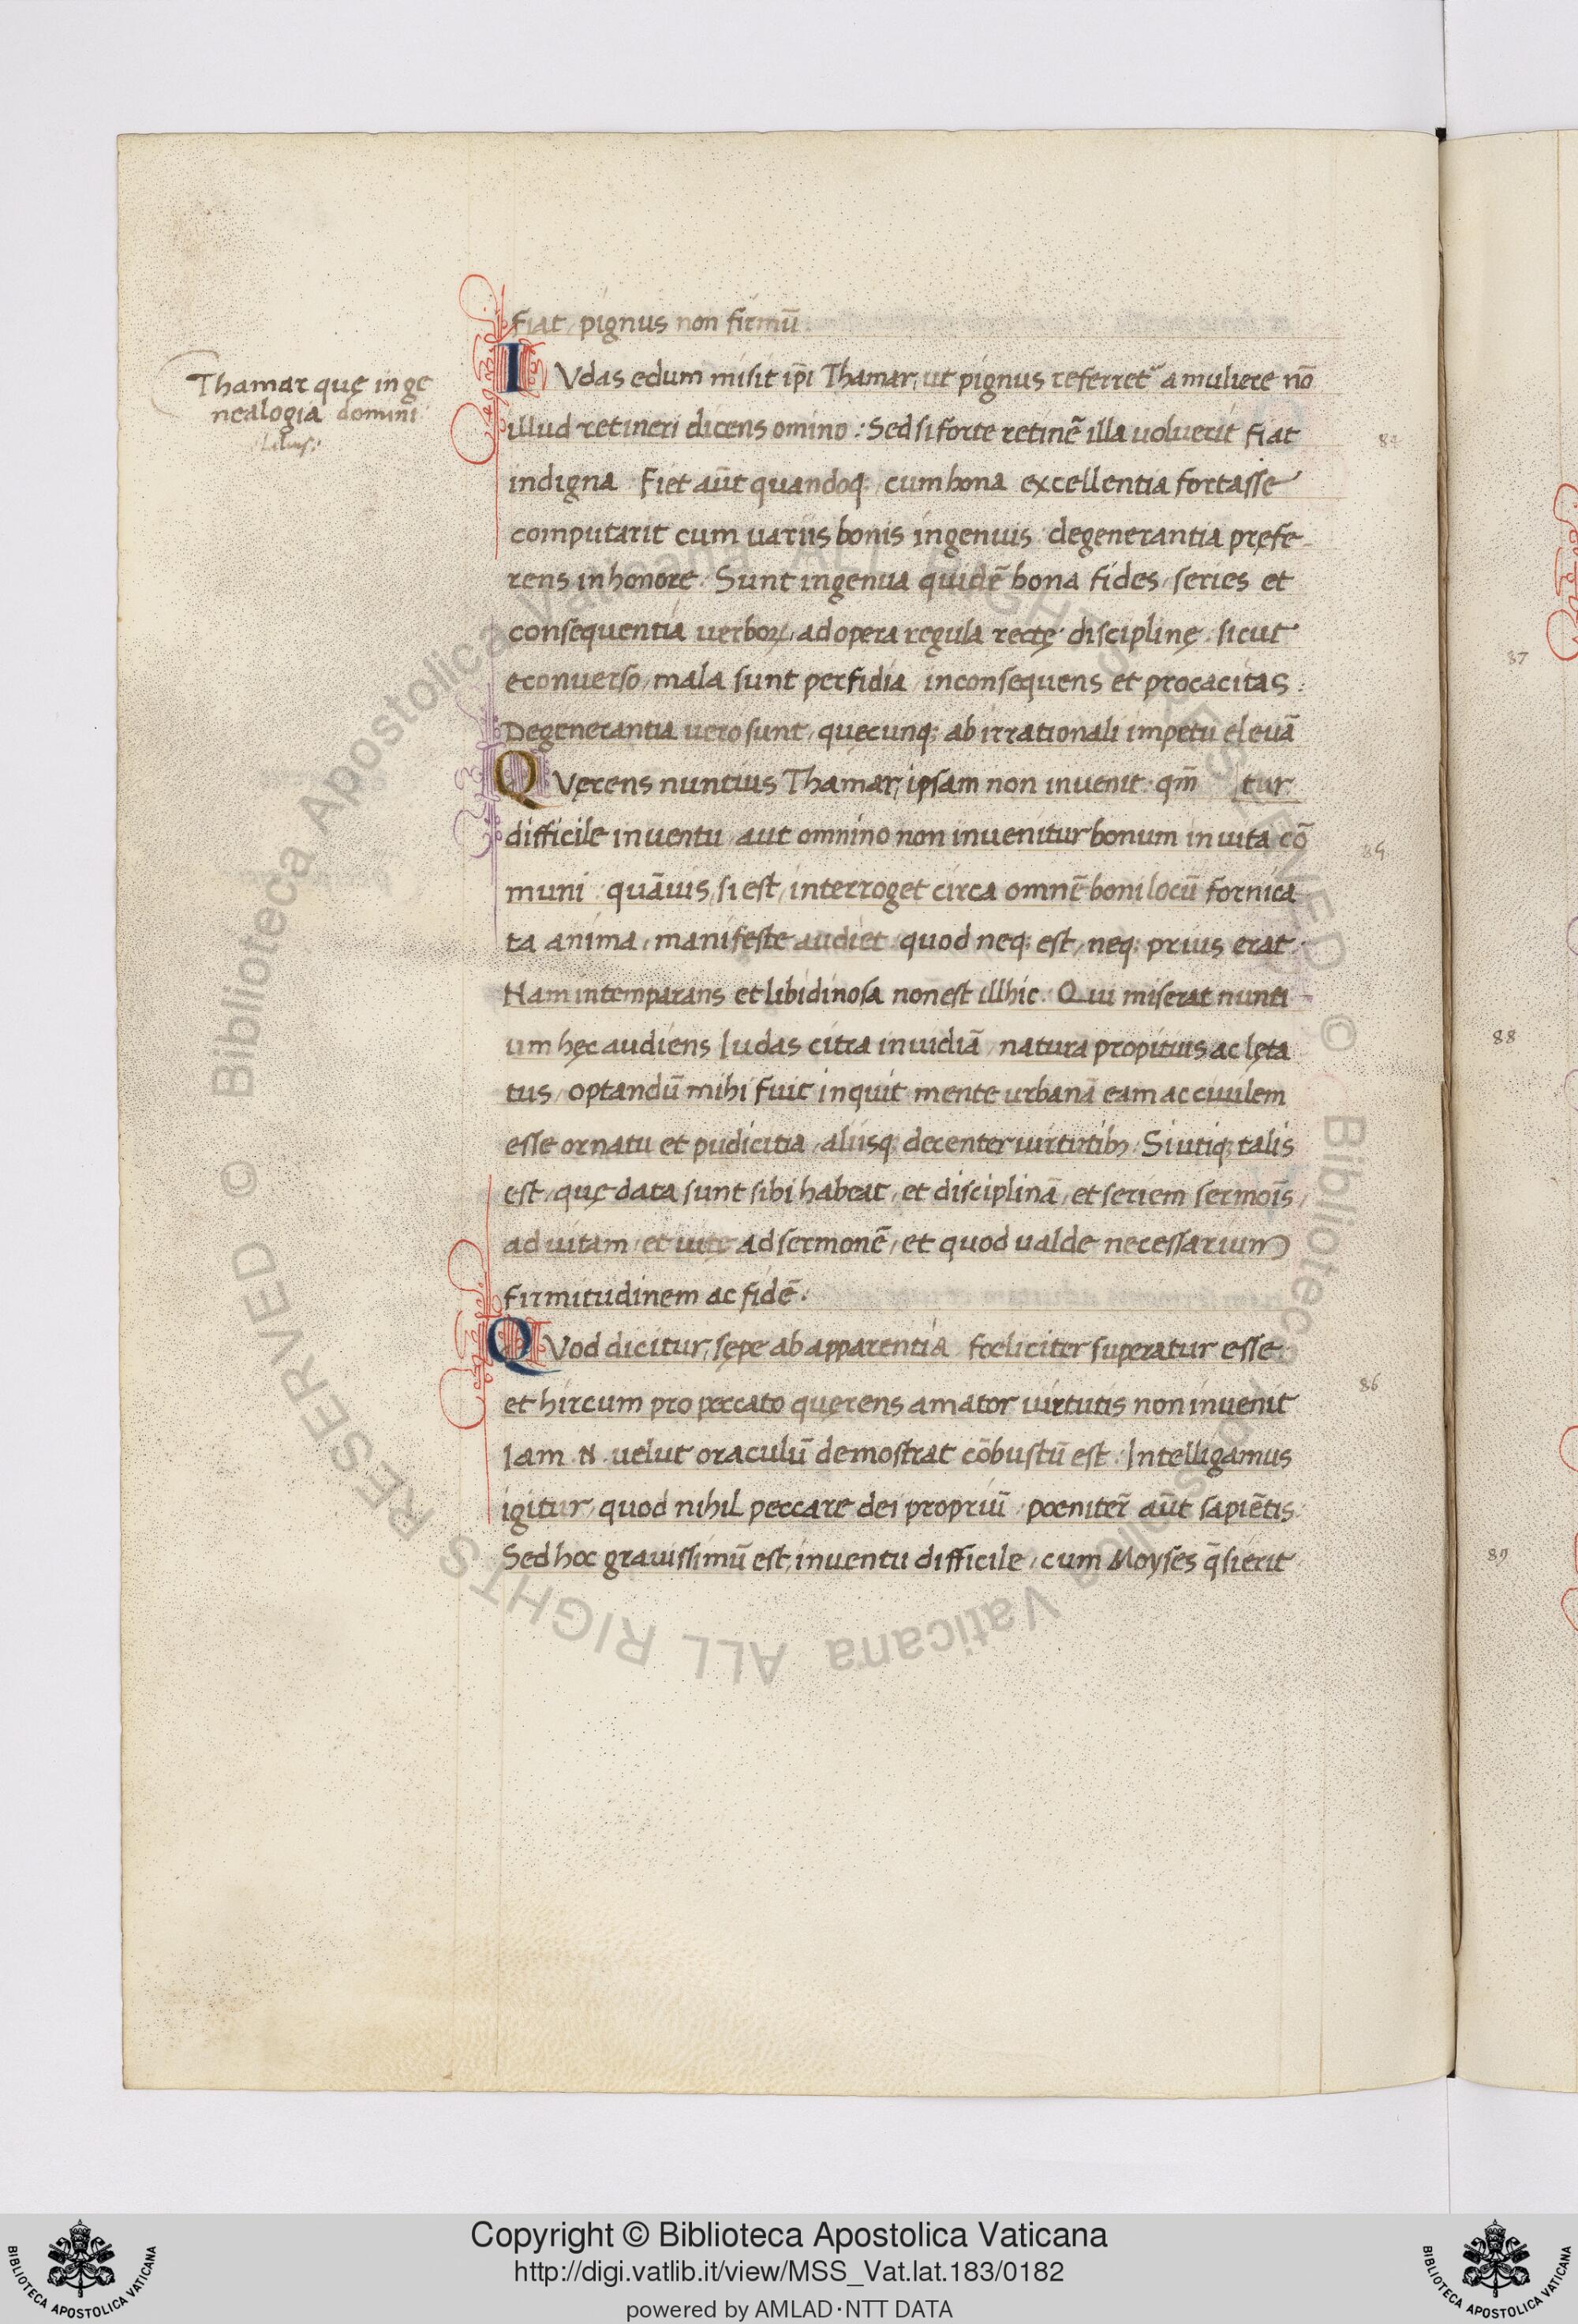 Thamar quę in ge
nealogia domini
fiat, pignus non firmū
IVdas edum misit ip̄i Thamar, ut pignus referret a muliere nō
illud retineri dicens omino: Sed si forte retinē illa uoluerit fiat
indigna Fiet aūt quandoq; cum bona excellentia fortasse
computarit cum uariis bonis ingenuis degenerantia prefe-
rens in honore. Sunt ingenua quidē bona fides, series et
consequentia uerboꝝ, ad opera regula rectę disciplinę. sicut
econuerso, mala sunt perfidia, inconsequens et procacitas:
Degenerantia uero sunt, quęcunq; ab irrationali impetu eleuā
QVęrens nuntius Thamar, ipsam non inuenit. qm̄ tur
difficile inuentu aut omnino non inuenitur bonum in uita cō
muni. quāuis, si est, interroget circa omnē boni locū fornica
ta anima, manifeste audiet quod neq; est, neq; prius erat.
Nam intemparans et libidinosa non est illhic. Qui miserat nunti
um hęc audiens Iudas citra inuidiā, natura propitius ac lęta
tus, optandū mihi fuit inquit mente urbanā eam ac ciuilem
esse ornatu et pudicitia, aliisq; decenter uirtutibꝫ. Si utiq; talis
est, quę data sunt sibi habeat, et disciplinā, et seriem sermoīs,
ad uitam, et uitę ad sermonē, et quod ualde necessarium
firmitudinem ac fidē.
QVod dicitur, sępe ab apparentia foeliciter superatur esse
et hircum pro peccato quęrens amator uirtutis non inuenit
Iam .N. uelut oraculū demostrat cōbustū est. Intelligamus
igitur, quod nihil peccare dei propriū. poeniter̄ aūt sapiētis.
Sed hoc grauissimū est, inuentu difficile, cum Moyses q̄sierit
86
87
88
89
Copyright © Biblioteca Apostolica Vaticana
http://digi.vatlib.it/view/MSS_Vat.lat.183/0182
powered by AMLAD·NTT DATA
BIBLIOTECA APOSTOLICA VATICANA
BIBLIOTECA APOSTOLICA VATICANA
© Biblioteca Apostolica Vaticana ALL RIGHTS RESERVED © Biblioteca Apostolica Vaticana ALL RIGHTS RESERVED